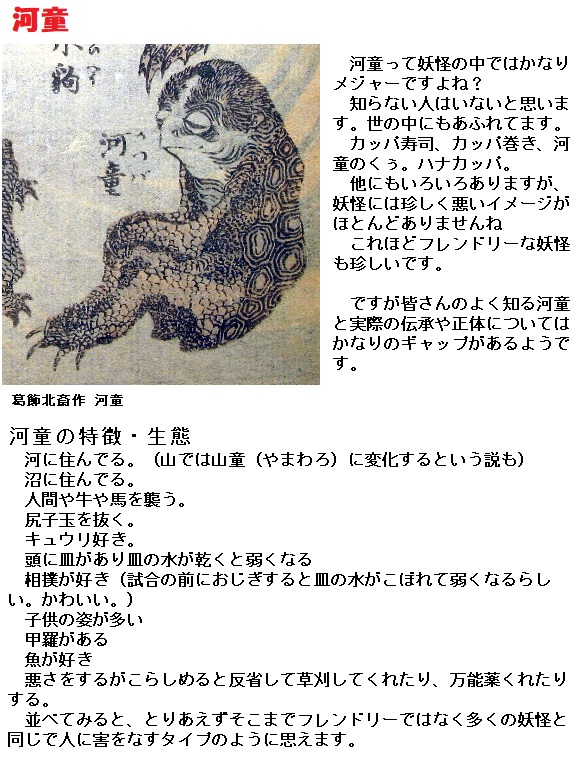 河童
水狗
かっぱ
河童
葛飾北斎作 河童
河童って妖怪の中ではかなり
メジャーですよね?
知らない人はいないと思いま
す。世の中にもあふれてます。
カッパ寿司、カッパ巻き、河
童のくぅ。ハナカッパ。
他にもいろいろありますが、
妖怪には珍しく悪いイメージが
ほとんどありませんね
これほどフレンドリーな妖怪
も珍しいです。
ですが皆さんのよく知る河童
と実際の伝承や正体については
かなりのギャップがあるようで
す。
河童の特徴・生態
河に住んでる。(山では山童(やまわろ)に変化するという説も)
沼に住んでる。
人間や牛や馬を襲う。
尻子玉を抜く。
キュウリ好き。
頭に皿があり皿の水が乾くと弱くなる
相撲が好き(試合の前におじぎすると皿の水がこぼれて弱くなるらし
い。かわいい。)
子供の姿が多い
甲羅がある
魚が好き
悪さをするがこらしめると反省して草刈してくれたり、万能薬くれたり
する。
並べてみると、とりあえずそこまでフレンドリーではなく多くの妖怪と
同じで人に害をなすタイプのように思えます。